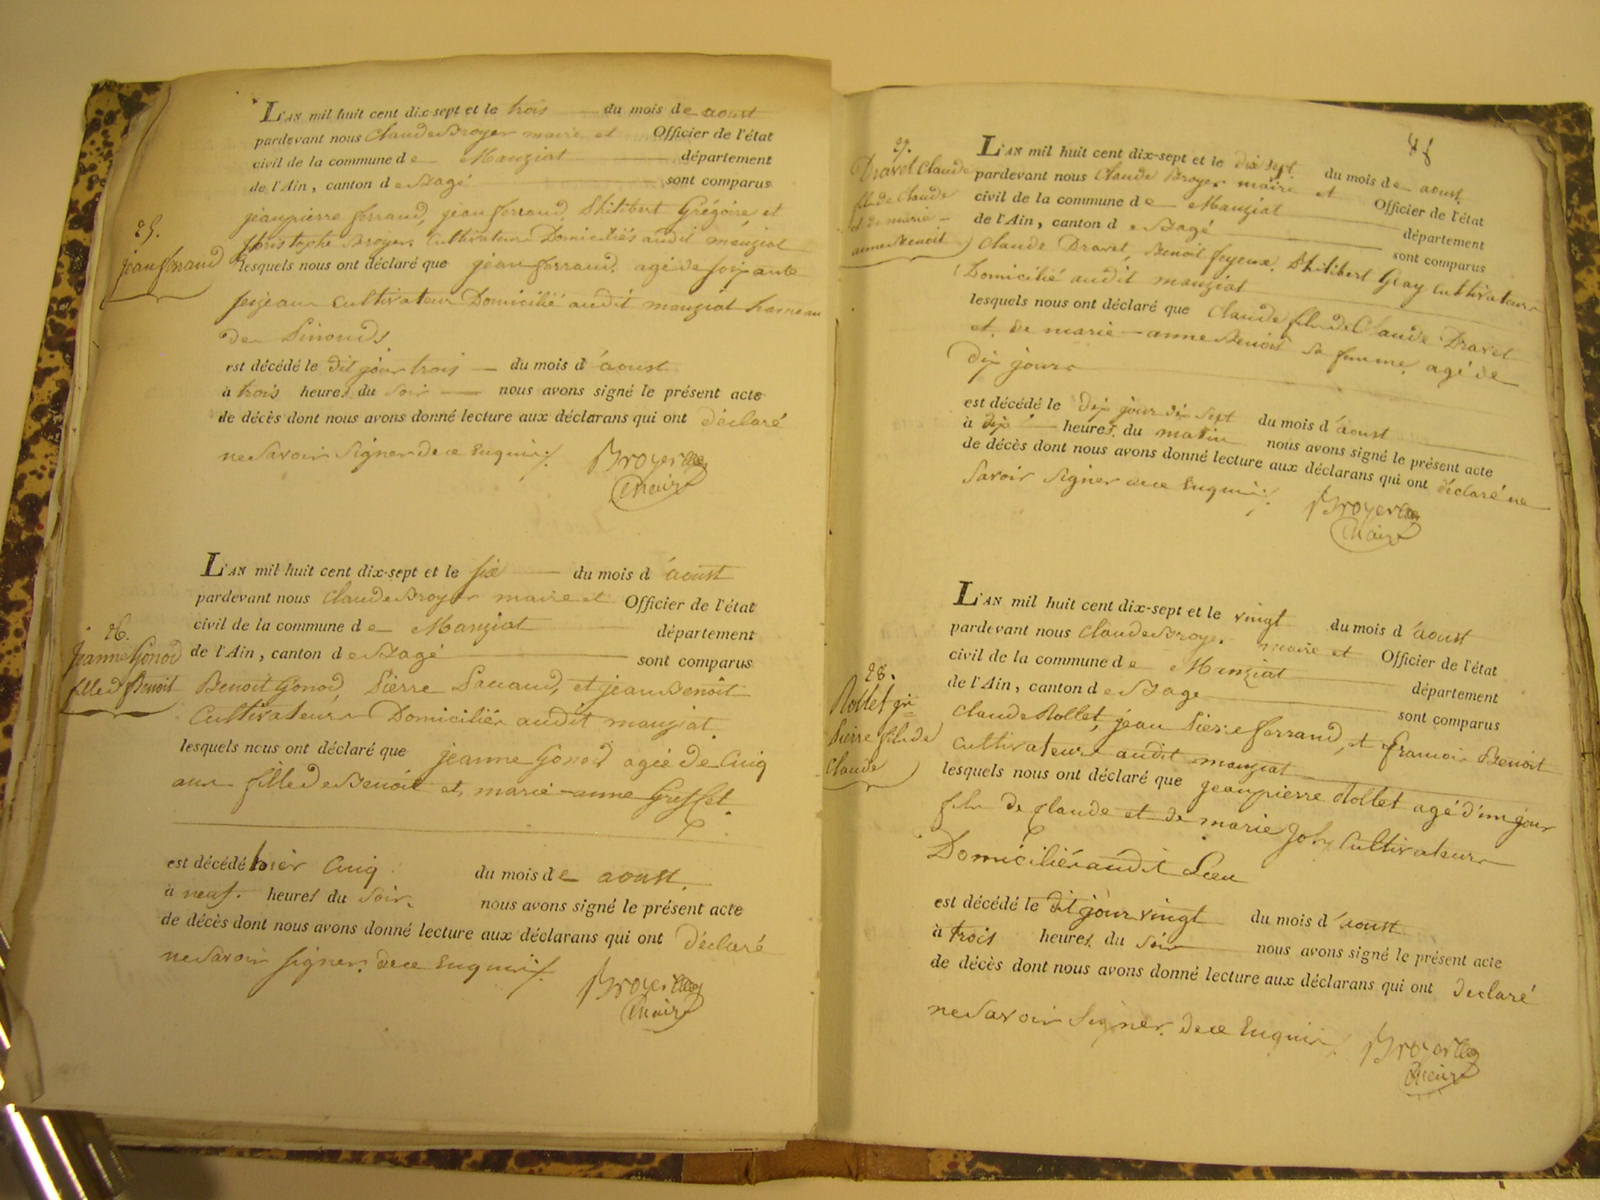 25.
jean ferrand
L'AN mil huit cent dix-sept et le trois du mois de aoust
pardevant nous Claude Broyer maire et Officier de l'état
civil de la commune de Manziat département
de l'Ain, canton de Bagé sont comparus
jeanpierre ferrand, jean ferrand, Philibert Grégoire, et
Christophe Broyer, Cultivateurs Domiciliés audit manziat
lesquels nous ont déclaré que jean ferrand, agé de soixante
Cultivateur Domicilié audit manziat hameau
De
est décédé le dit jour trois du mois d'aoust
à trois heures du soir nous avons signé le présent acte
de décès dont nous avons donné lecture aux déclarans qui ont déclaré
ne Savoir Signer de ce Enquis Broyer
Maire
26.
jeanne Gonod
fille d Benoit
L'AN mil huit cent dix-sept et le six du mois d'aoust
pardevant nous Claude Broyer maire et Officier de l'état
civil de la commune de Manziat département
de l'Ain, canton de Bagé sont comparus
Benoit Gonod, Pierre et jean Benoit
Cultivateurs Domiciliés audit manziat
lesquels nous ont déclaré que jeanne Gonod agée De Cinq
ans fille de Benoit et marie-anne Greffet
est décédé hier Cinq du mois de aoust
à neuf heures du Soir nous avons signé le présent acte
de décès dont nous avons donné lecture aux déclarans qui ont Déclaré
ne Savoir Signer de ce Enquis Broyer
Maire
27.
Dravet Claude
fils de Claude
et de marie
anne Benoit
L'AN mil huit cent dix-sept et le dix sept du mois de aoust
pardevant nous Claude Broyer maire et Officier de l'état
civil de la commune de Manziat département
de l'Ain, canton de Bagé sont comparus
Claude Dravet, Benoit feyeux, Philibert Gray Cultivateurs
Domicilié audit manziat
lesquels nous ont déclaré que Claude fils de Claude Dravet
et de marie-anne Benoit sa femme, agé de
Dix jours
est décédé le dix sept du mois d'aoust
à heures du matin nous avons signé le présent acte
de décès dont nous avons donné lecture aux déclarans qui ont déclaré ne
Savoir Signer de ce Enquis Broyer
Maire
28.
Rollet
Pierre fils de
Claude
L'AN mil huit cent dix-sept et le vingt du mois d'aoust
pardevant nous Claude Broyer maire et Officier de l'état
civil de la commune de Manziat département
de l'Ain, canton de Bagé sont comparus
Claude Rollet, jean Pierre ferrand, et francois Benoit
Cultivateurs audit manziat
lesquels nous ont déclaré que jeanpierre Rollet agé d'un jour
fils de Claude et de marie Joly Cultivateurs
Domiciliés audit Lieu
est décédé le dit jour vingt du mois d'aoust
à trois heures du soir nous avons signé le présent acte
de décès dont nous avons donné lecture aux déclarans qui ont déclaré
ne Savoir Signer de ce Enquis Broyer
Maire